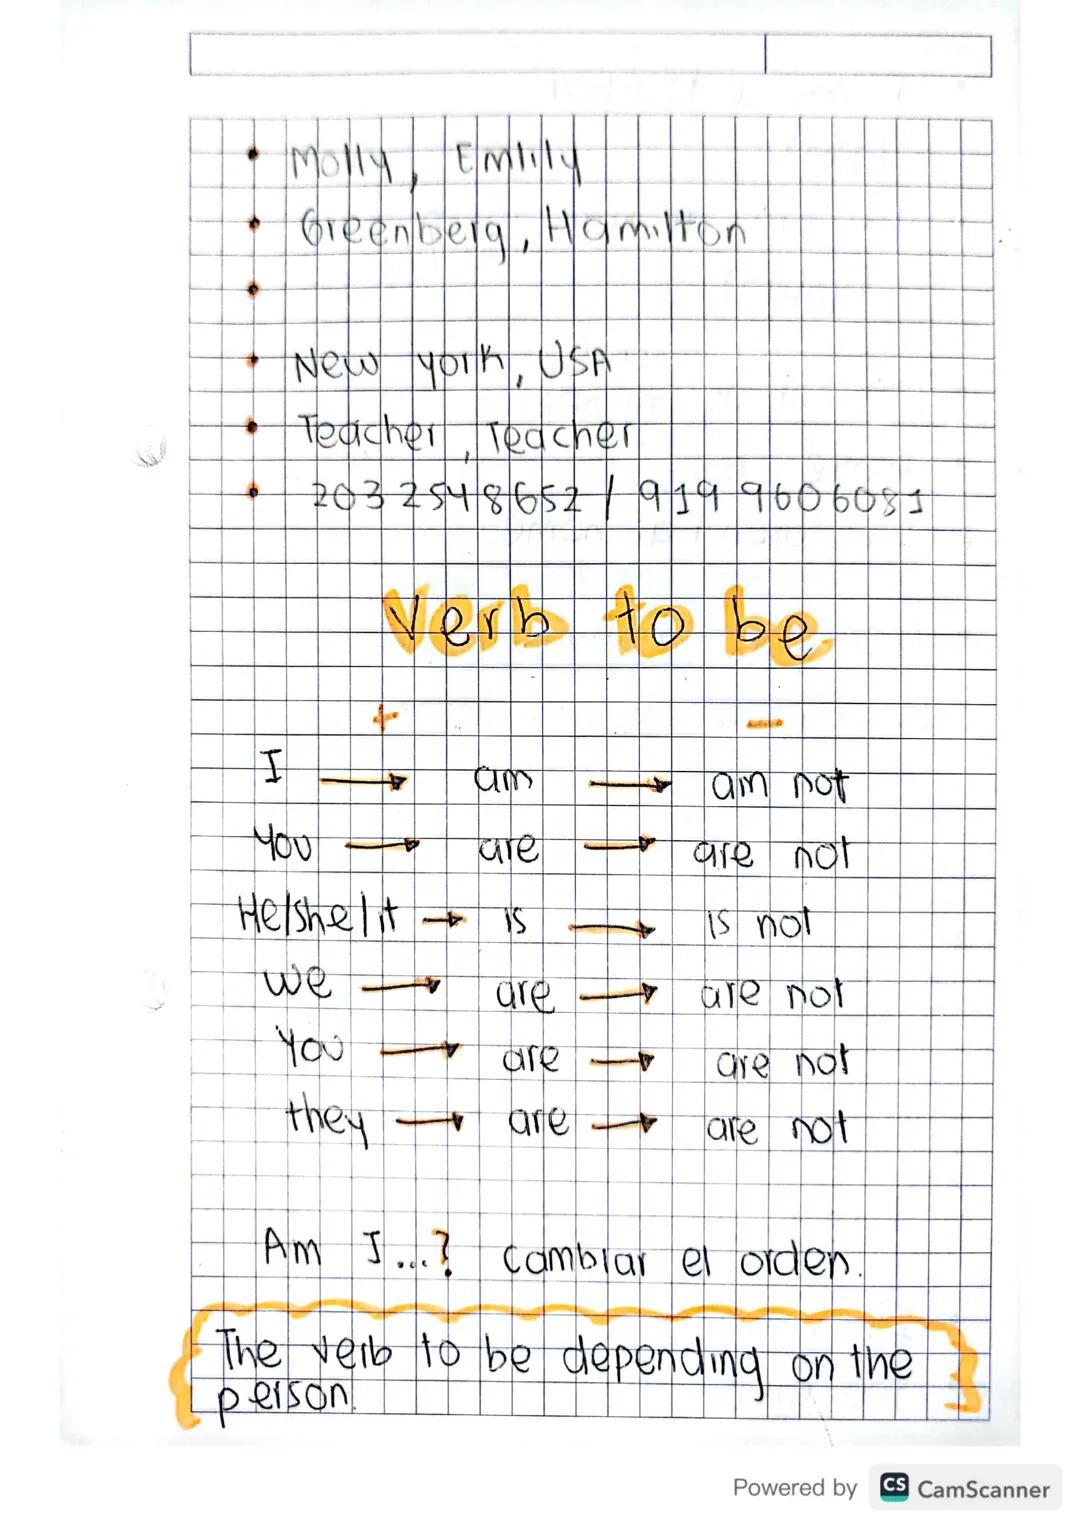 • Molly, Emlily
• Greenberg, Hamilton
•
• New york, USA
• Teacher, Teacher
• 203 254 8652 / 919 9606081
Verb to be
+ −
I → am → am not
You → are → are not
He/she/it → is → is not
we → are → are not
You → are → are not
they → are → are not
Am I...? cambiar el orden.
The verb to be depending on the
person.
Powered by CS CamScanner